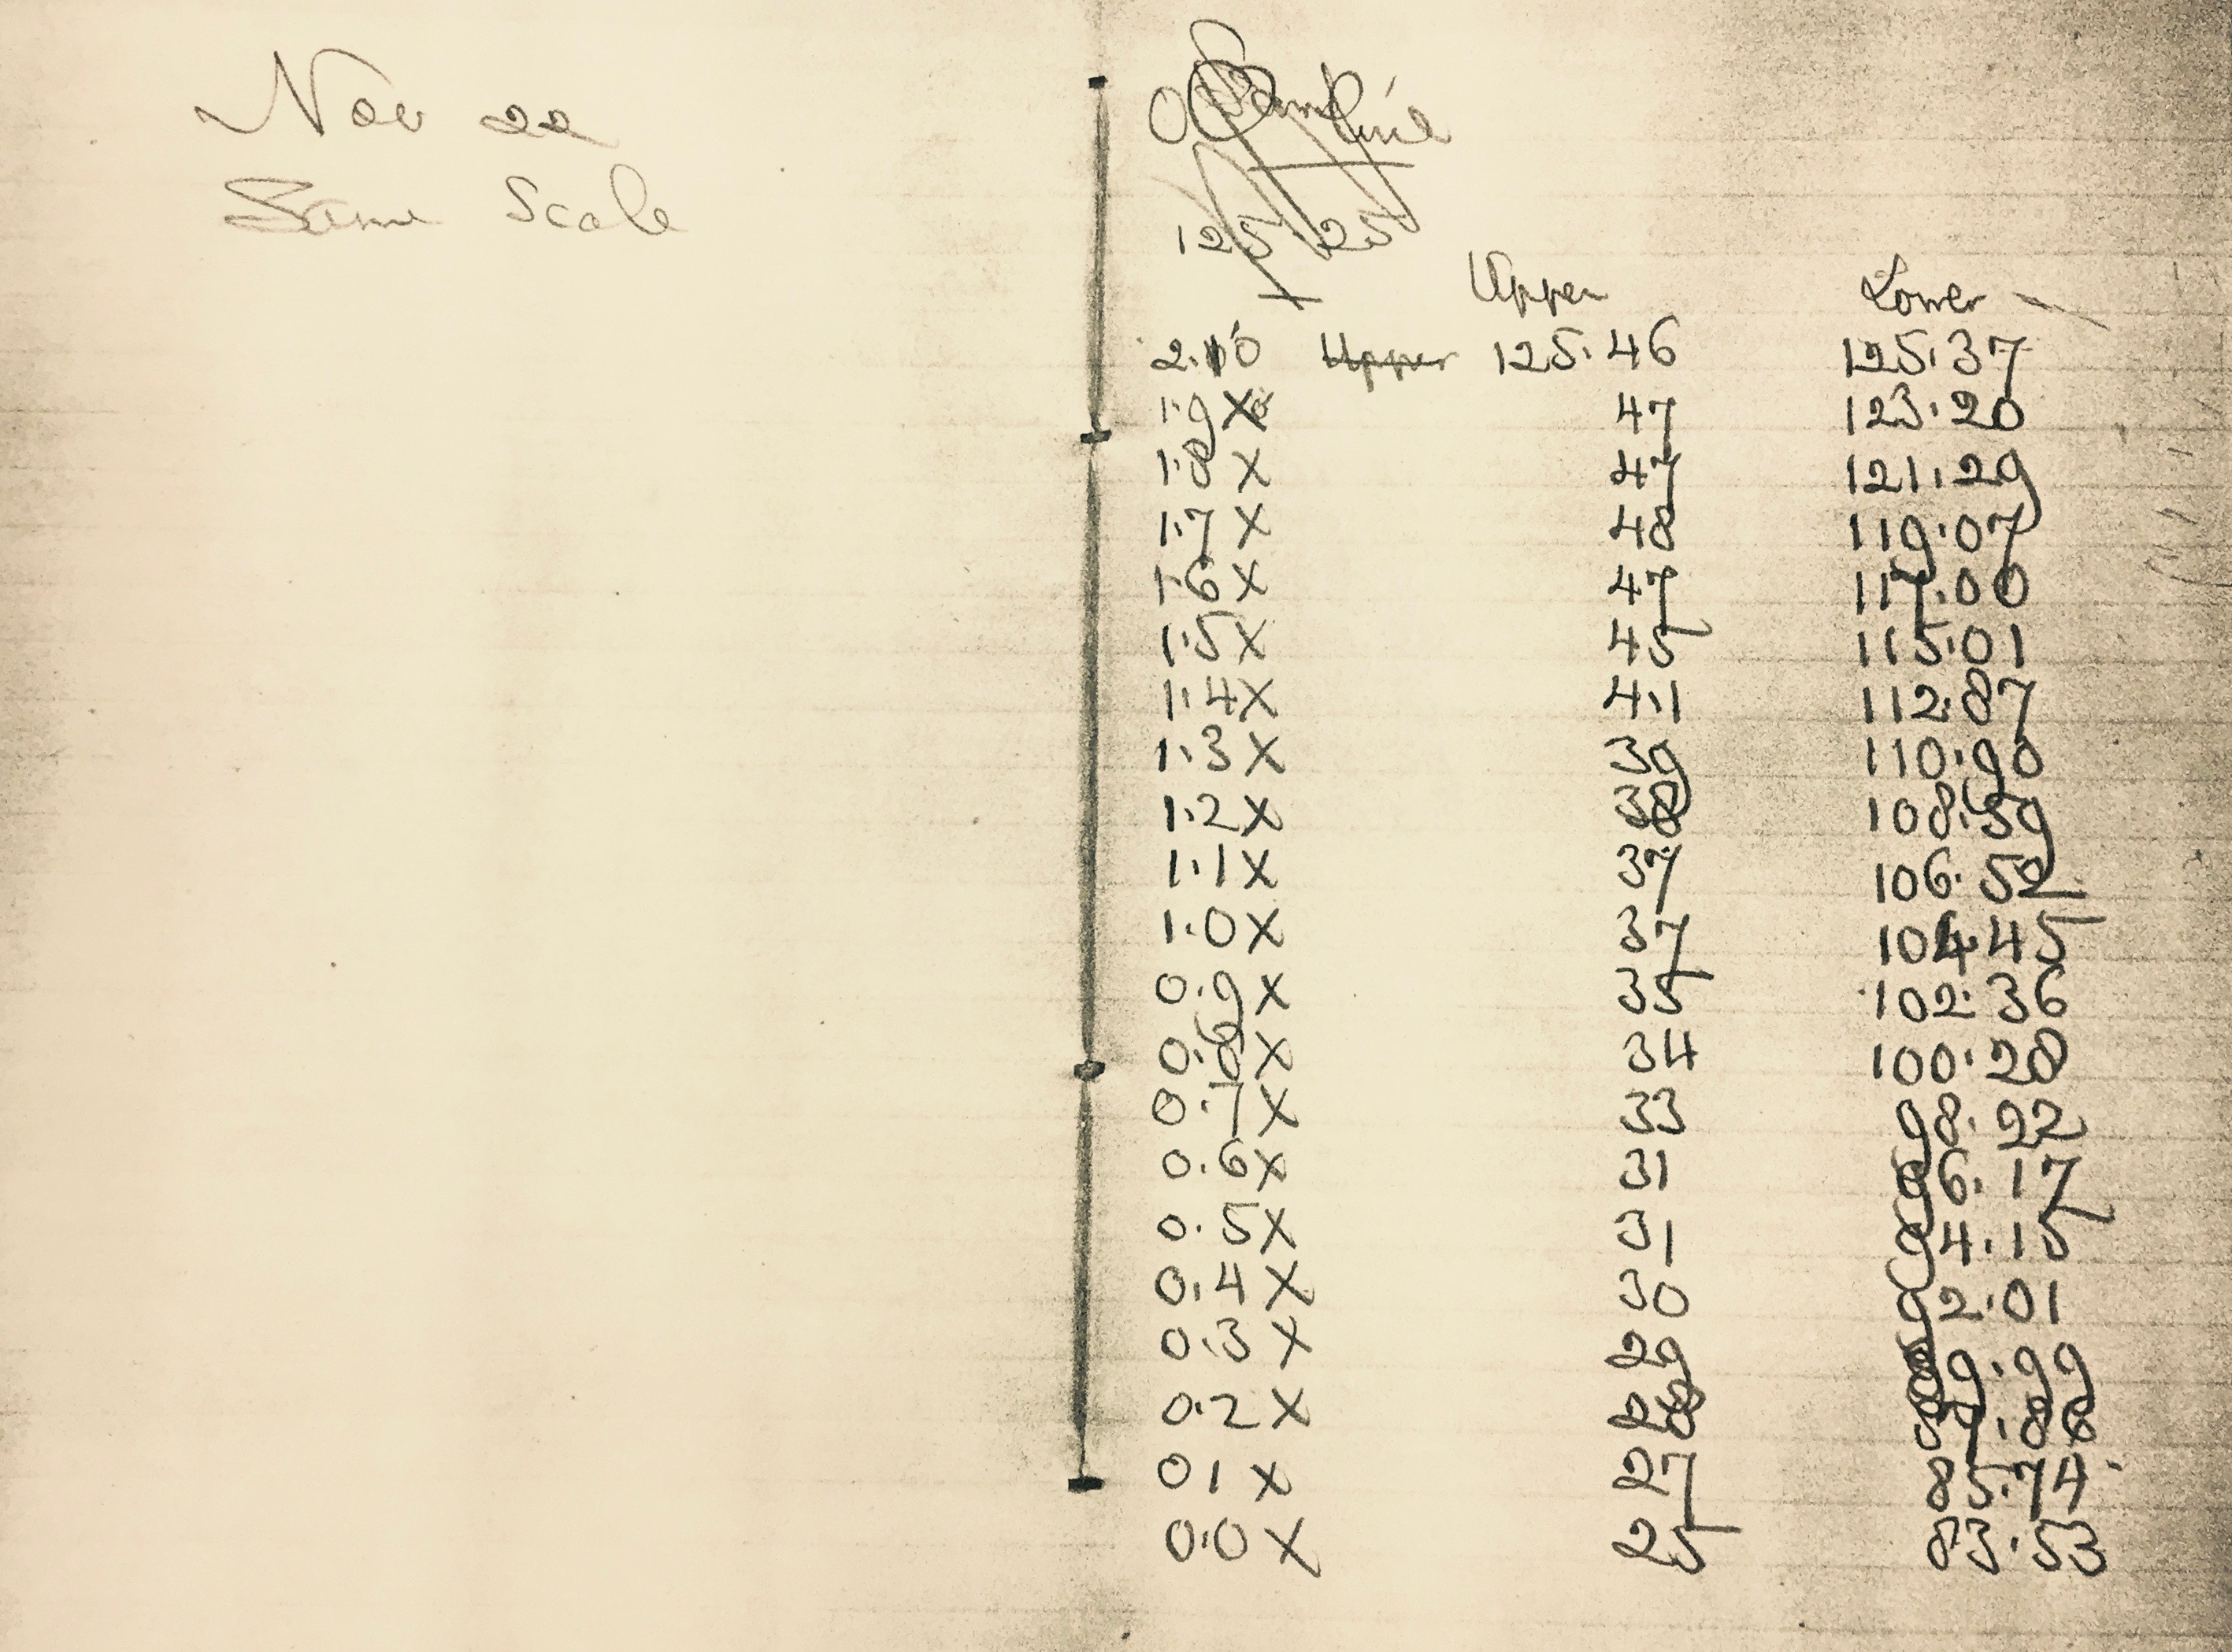 Nov 22
Same Scale
125.25
Upper Lower
2.00 Upper 125.46 125.37
1.9 X 47 123.20
1.8 X 47 121.29
1.7 X 48 119.07
1.6 X 47 117.00
1.5 X 45 115.01
1.4 X 41 112.87
1.3 X 39 110.90
1.2 X 38 108.59
1.1 X 37 106.52
1.0 X 37 104.45
0.9 X 35 102.36
0.8 X 34 100.28
0.7 X 33 98.22
0.6 X 31 96.17
0.5 X 31 94.15
0.4 X 30 92.01
0.3 X 29 89.99
0.2 X 28 87.86
0.1 X 27 85.74
0.0 X 25 83.53